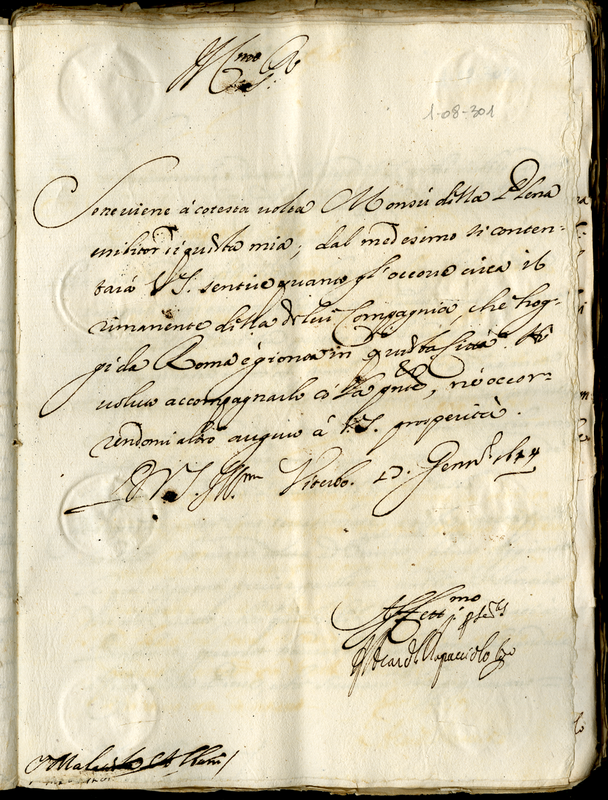 Ill.mo S.r
1-08-301
Se ne viene à cotesta volta Monsù della Plena
esibitor di questa mia; dal medesimo si conten-
tarà V.S. sentire quanto gl'occorre circa il
rimanente della di lui Compagnia che hog-
gi da Roma è gionta in questa Città. Hò
voluto accompagnarlo cõ la pñte, nè occor-
rendomi altro auguro à V.S. prosperità.
Di V.S. Ill.ma Viterbo. 17. Genn.o 1644
Aff.mo
Il Card. Rapacciolo